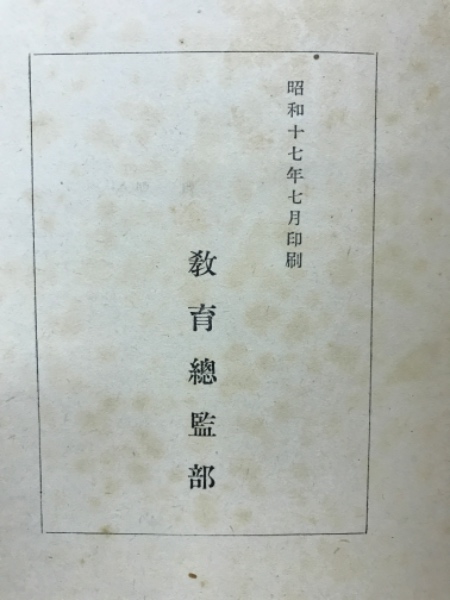 昭和十七年七月印刷
教育總監部